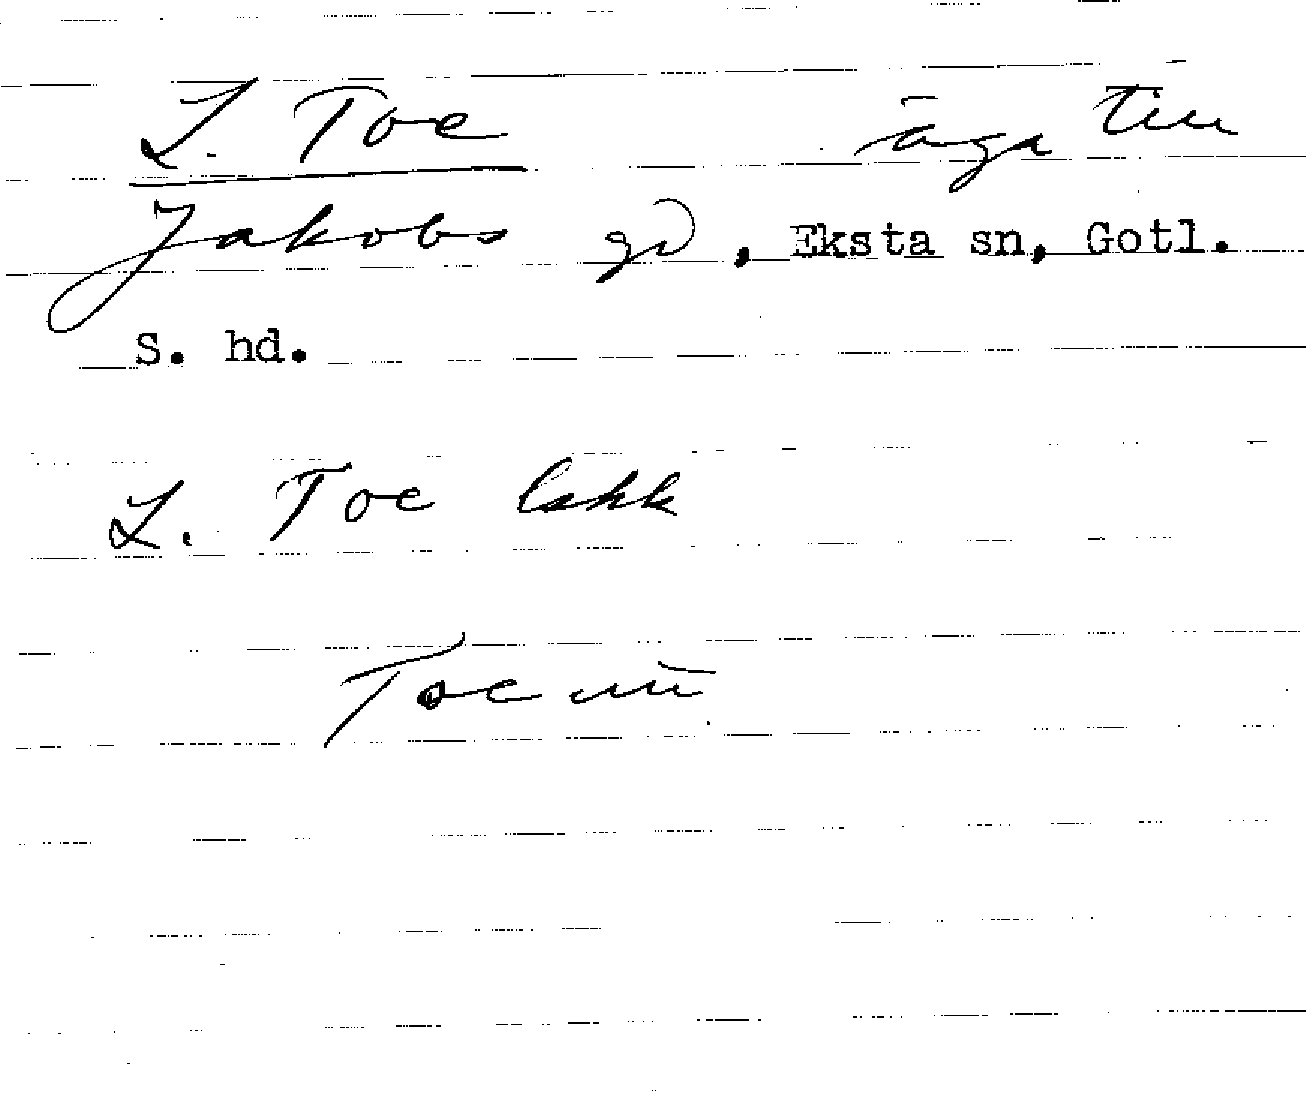 L. Toe äga till
Jakobs gd, Eksta sn, Gotl.
S. hd.
L. Toe
Toe